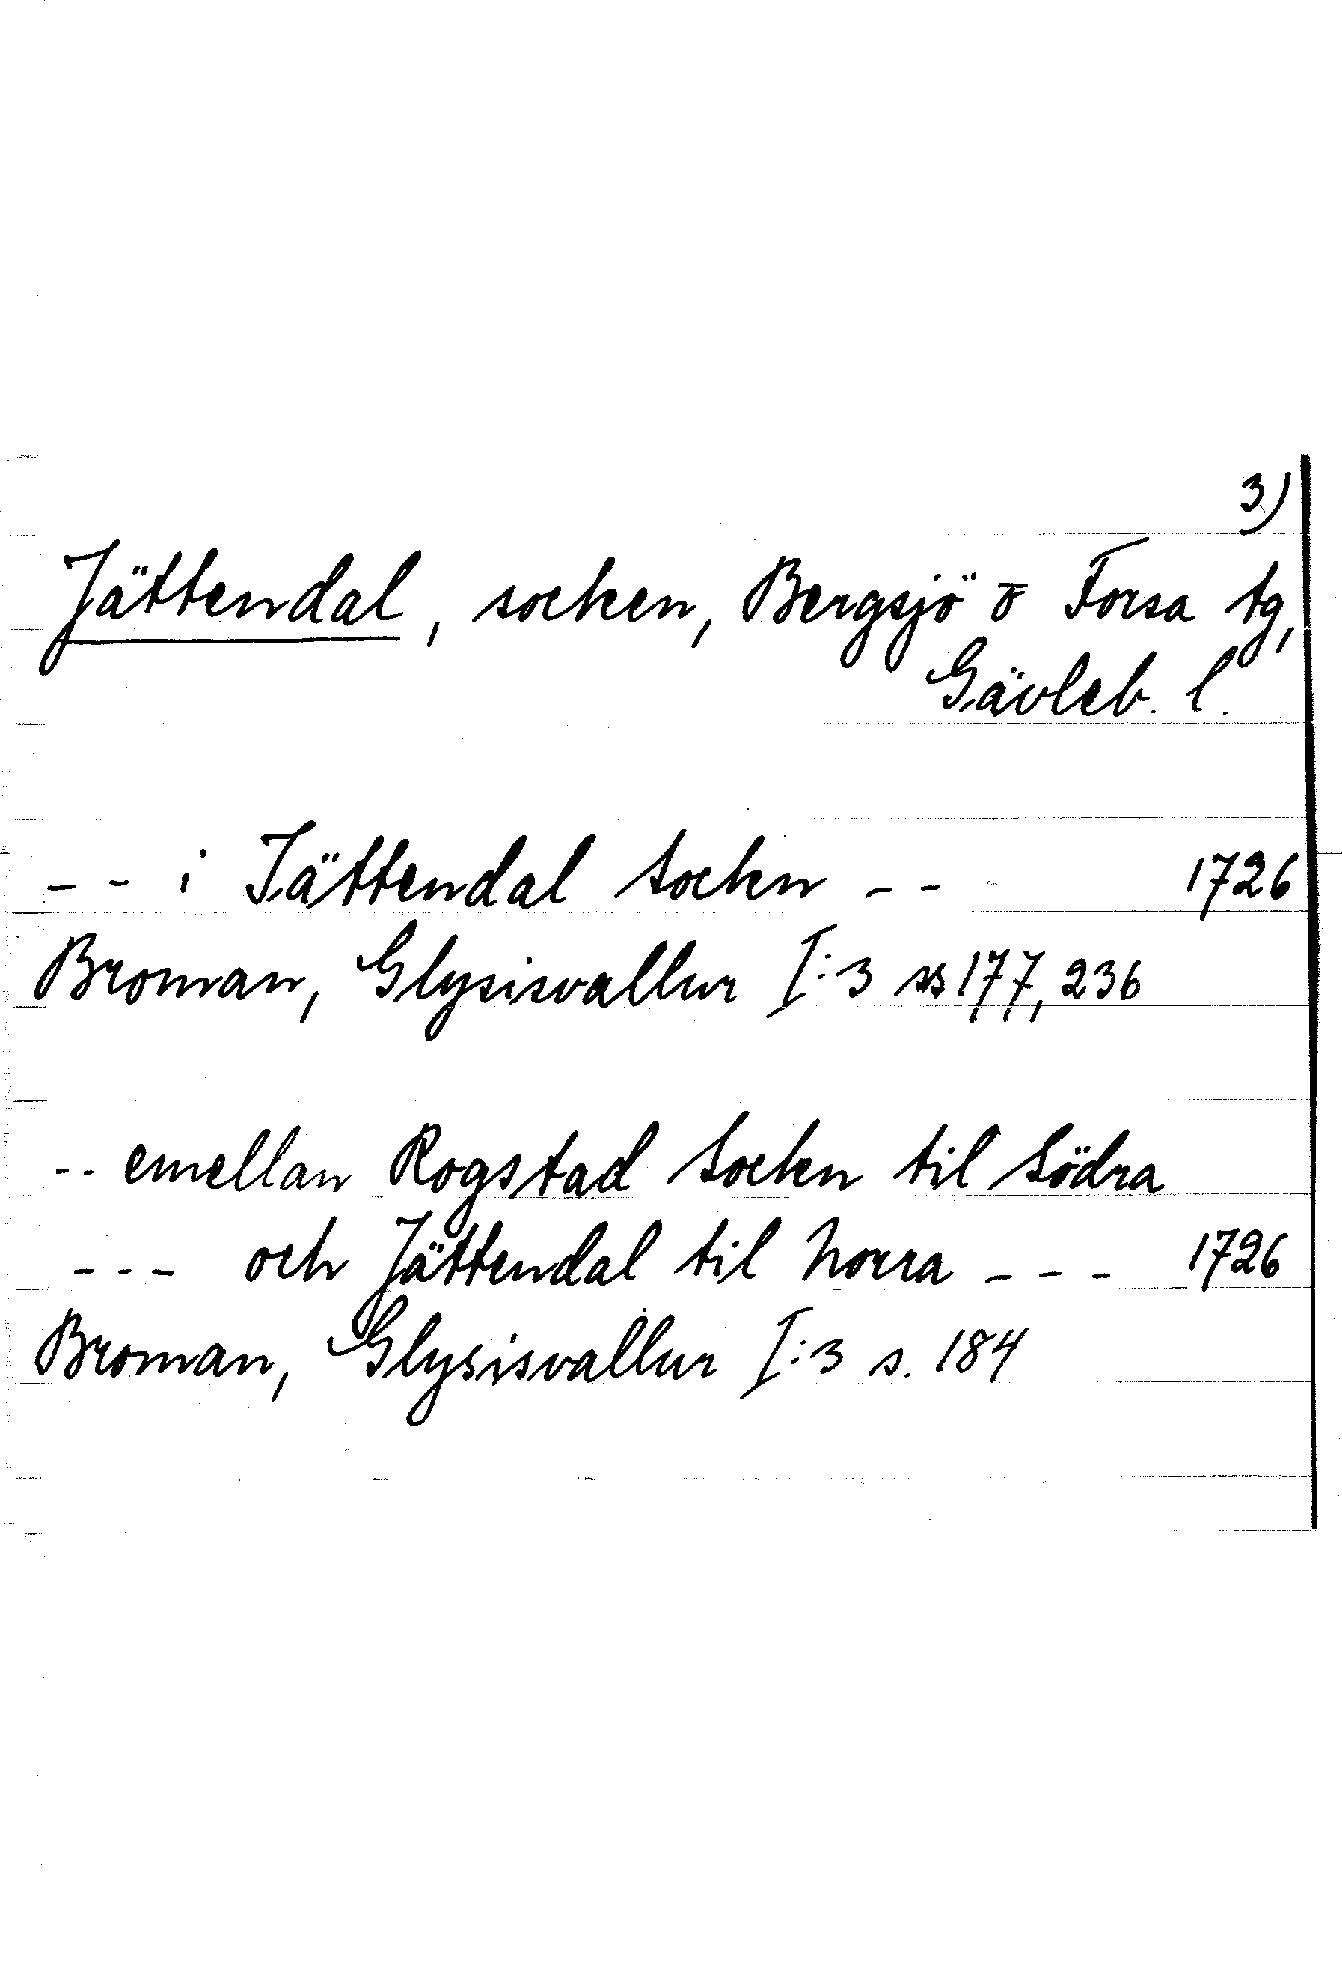 3)
Jättendal, socken, Bergsjö o Forsa tg,
Gävleb. l.
-- i Jättendal Sockn --  1726
Broman, Glysisvallur I:3 ss 177, 236
-- emellan Rogstad Sockn til Södra
--- och Jättendal til Norra ---  1726
Broman, Glysisvallur I:3 s. 184